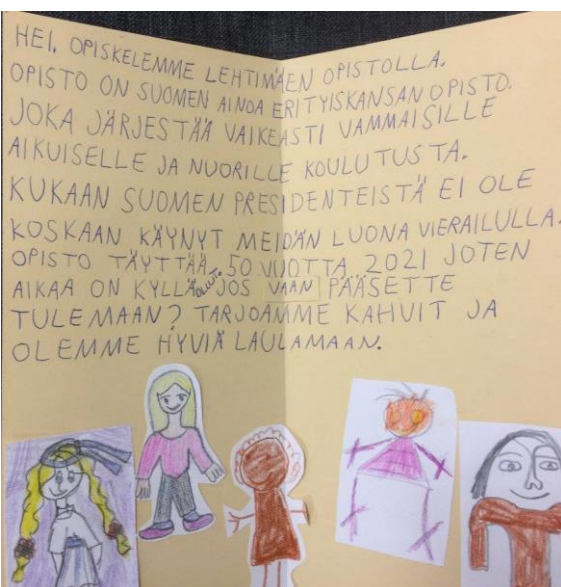 HEI, OPISKELEMME LEHTIMÄEN OPISTOLLA.
OPISTO ON SUOMEN AINOA ERITYISKANSANOPISTO.
JOKA JÄRJESTÄÄ VAIKEASTI VAMMAISILLE
AIKUISELLE JA NUORILLE KOULUTUSTA.
KUKAAN SUOMEN PRESIDENTEISTÄ EI OLE
KOSKAAN KÄYNYT MEIDÄN LUONA VIERAILULLA.
OPISTO TÄYTTÄÄ 50 VUOTTA 2021 JOTEN
AIKAA ON KYLLÄ OLLUT. JOS VAAN PÄÄSETTE
TULEMAAN? TARJOAMME KAHVIT JA
OLEMME HYVIÄ LAULAMAAN.